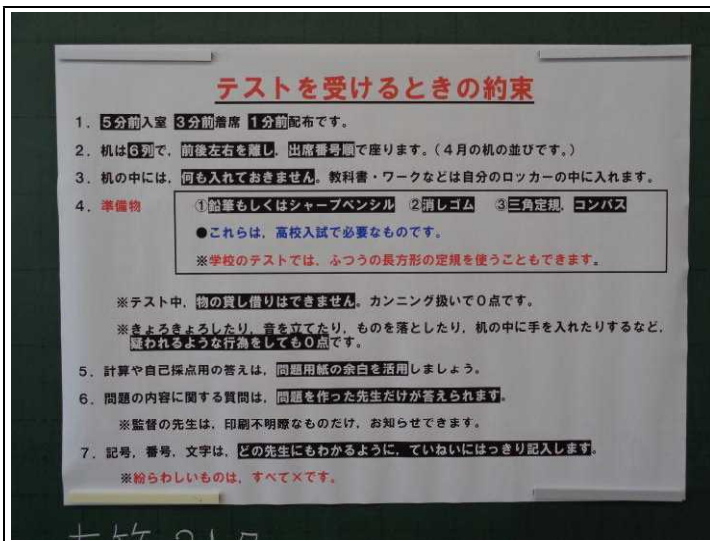 テストを受けるときの約束
1．5分前入室 3分前着席 1分前配布です。
2．机は6列で，前後左右を離し，出席番号順で座ります。（４月の机の並びです。）
3．机の中には，何も入れておきません。教科書・ワークなどは自分のロッカーの中に入れます。
4．準備物 ①鉛筆もしくはシャープペンシル ②消しゴム ③三角定規，コンパス
●これらは，高校入試で必要なものです。
※学校のテストでは，ふつうの長方形の定規を使うこともできます。
※テスト中，物の貸し借りはできません。カンニング扱いで０点です。
※きょろきょろしたり，音を立てたり，ものを落としたり，机の中に手を入れたりするなど，
疑われるような行為をしても０点です。
5．計算や自己採点用の答えは，問題用紙の余白を活用しましょう。
6．問題の内容に関する質問は，問題を作った先生だけが答えられます。
※監督の先生は，印刷不明瞭なものだけ，お知らせできます。
7．記号，番号，文字は，どの先生にもわかるように，ていねいにはっきり記入します。
※紛らわしいものは，すべて×です。